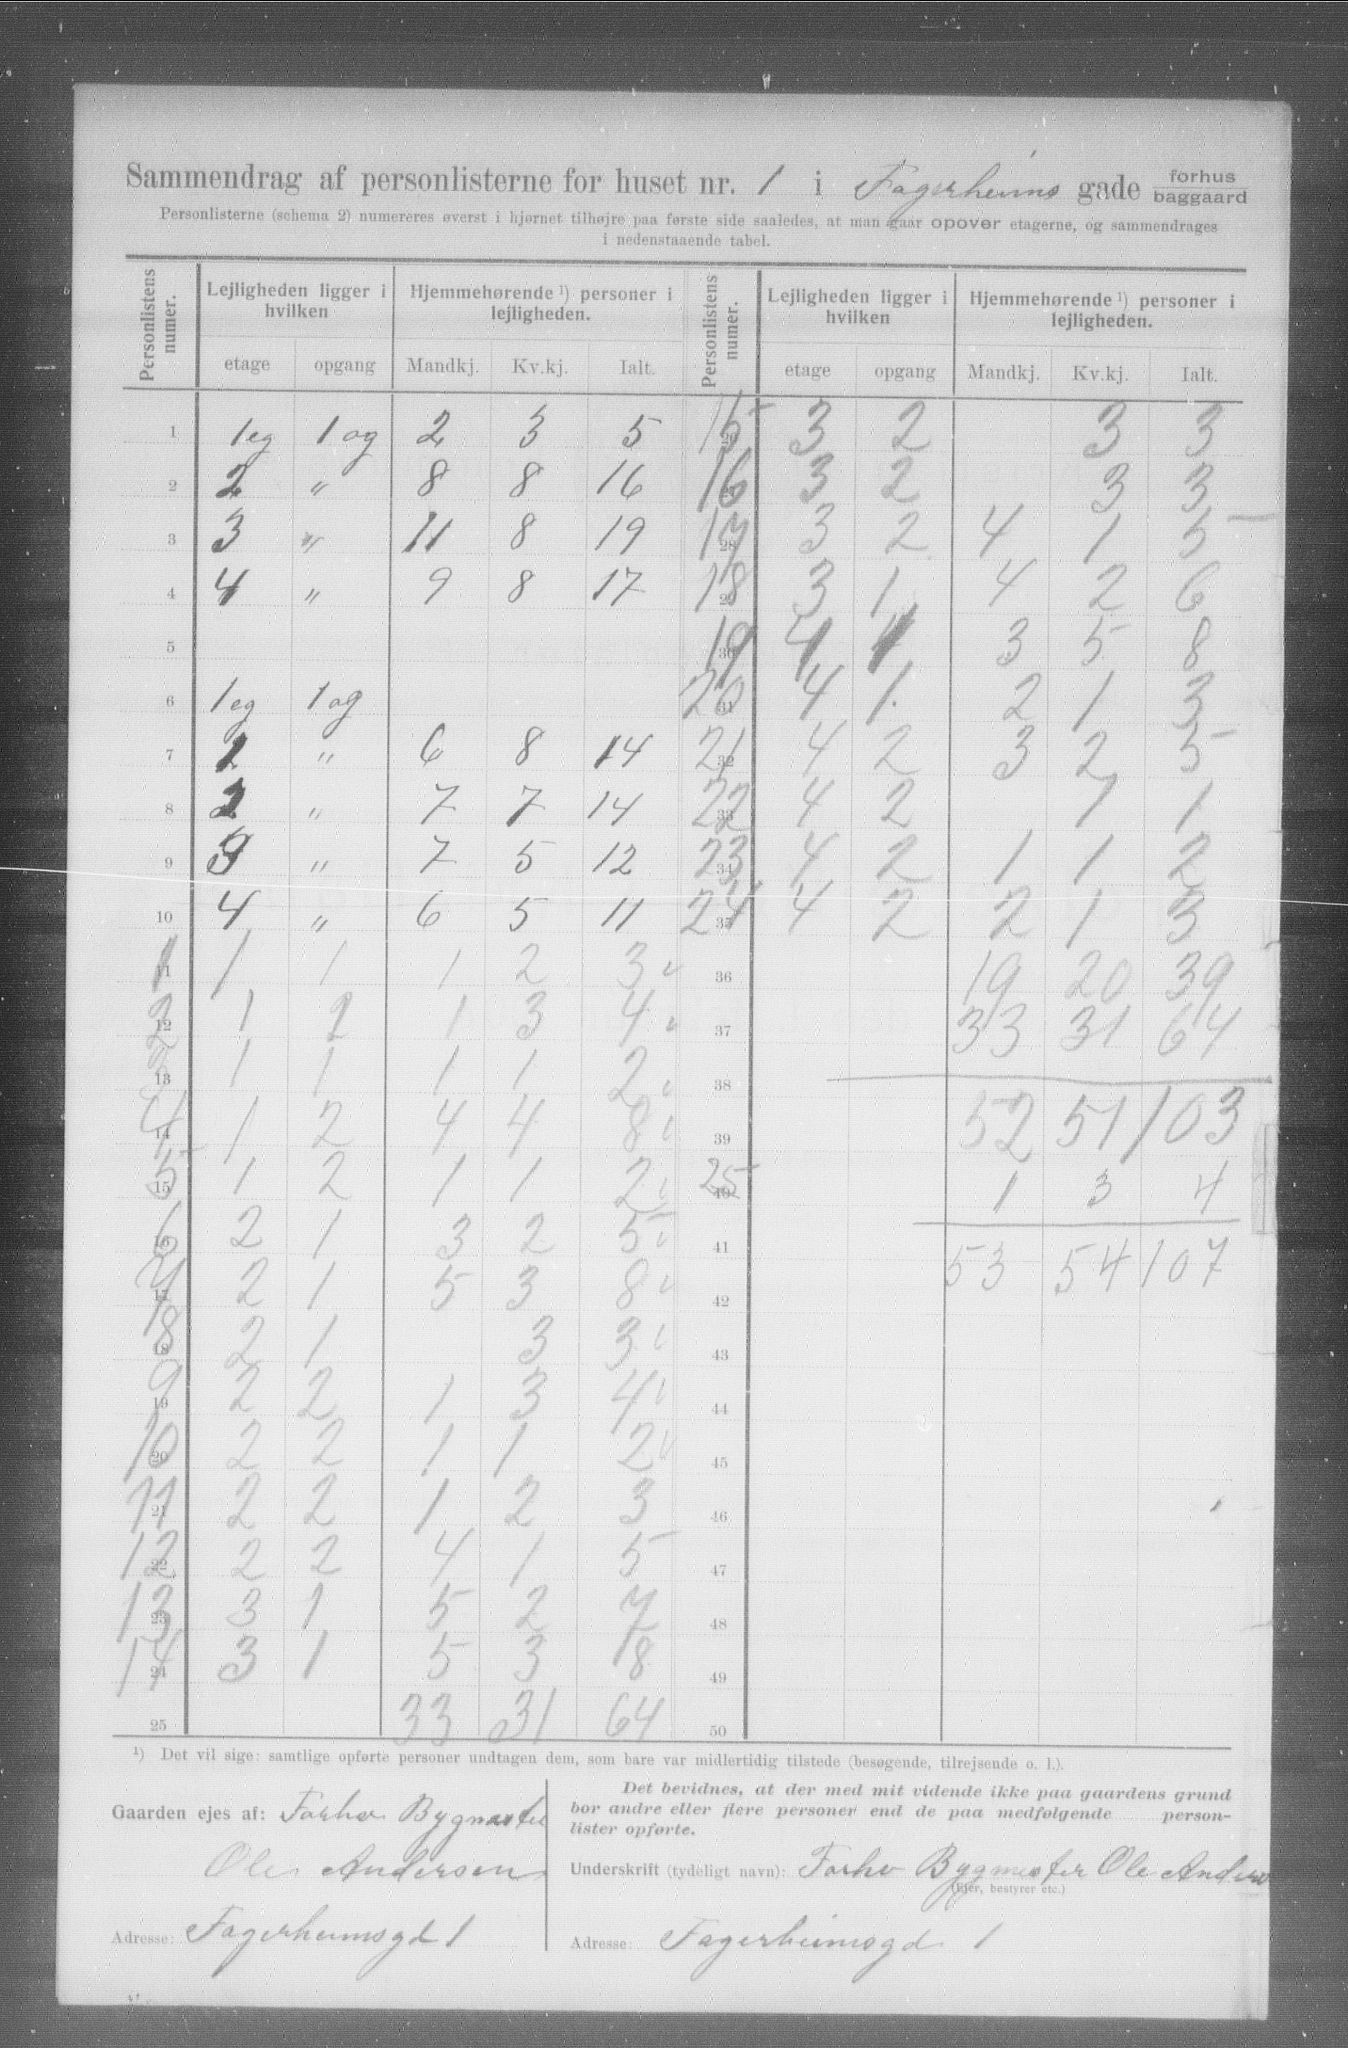 Sammendrag af personlisterne for huset nr. 1 i Fagerheims gade forhus baggaard
Personlisterne (schema 2) numereres øverst i hjørnet tilhøjre paa første side saaledes, at man gaar opover etagerne, og sammendrages
i nedenstaaende tabel.
Personlistens numer. Lejligheden ligger i hvilken Hjemmehørende ¹) personer i lejligheden. Personlistens numer. Lejligheden ligger i hvilken Hjemmehørende ¹) personer i lejligheden.
etage opgang Mandkj. Kv.kj. Ialt. etage opgang Mandkj. Kv.kj. Ialt.
1 1 eg 1 og 2 3 5
2 2 " 8 8 16
3 3 " 11 8 19
4 4 " 9 8 17
5
6 1 eg 1 og
7 " 6 8 14
8 2 " 7 7 14
9 3 " 7 5 12
10 4 " 6 5 11
11 1 1 1 1 2 3
12 2 1 2 1 3 4
13 3 1 1 1 1 2
14 4 1 2 4 4 8
15 5 1 2 1 1 2
16 6 2 1 3 2 5
17 7 2 1 5 3 8
18 8 2 1 3 3
19 9 2 2 1 3 4
20 10 2 2 1 1 2
21 11 2 2 1 2 3
22 12 2 2 4 1 5
23 13 3 1 5 2 7
24 14 3 1 5 3 8
25 33 31 64
26 15 3 2 3 3
27 16 3 2 3 3
28 17 3 2 4 1 5
29 18 3 1 4 2 6
30 19 4 1 3 5 8
31 20 4 1. 2 1 3
32 21 4 2 3 2 5
33 22 4 2 1 1
34 23 4 2 1 1 2
35 24 4 2 2 1 3
36 19 20 39
37 33 31 64
38
39 52 51 103
40 25 1 3 4
41 53 54 107
42
43
44
45
46
47
48
49
50
¹) Det vil sige: samtlige opførte personer undtagen dem, som bare var midlertidig tilstede (besøgende, tilrejsende o. l.).
Gaarden ejes af: Forhv Bygmester
Ole Andersen
Adresse: Fagerheimsgd 1
Det bevidnes, at der med mit vidende ikke paa gaardens grund
bor andre eller flere personer end de paa medfølgende person-
lister opførte.
Underskrift (tydeligt navn): Forhv Bygmester Ole Anders
(Ejer, bestyrer etc.)
Adresse: Fagerheimsgd 1